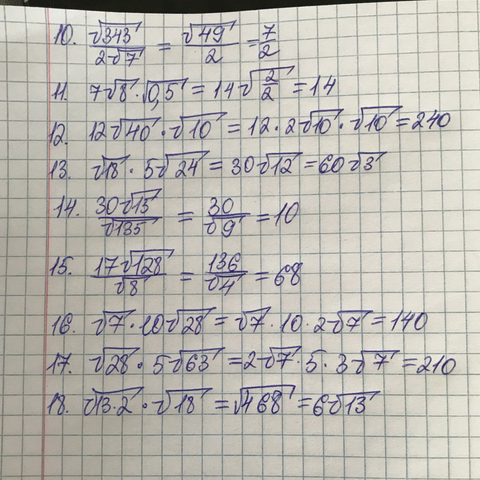 10. √343 / 2√7 = √49 / 2 = 7/2
11. 7√8 · √0,5 = 14√(2/2) = 14
12. 12√40 · √10 = 12 · 2√10 · √10 = 240
13. √18 · 5√24 = 30√12 = 60√3
14. 30√15 / √135 = 30 / √9 = 10
15. 17√128 / √8 = 136 / √4 = 68
16. √7 · 10√28 = √7 · 10 · 2√7 = 140
17. √28 · 5√63 = 2√7 · 5 · 3√7 = 210
18. √13·2 · √18 = √468 = 6√13